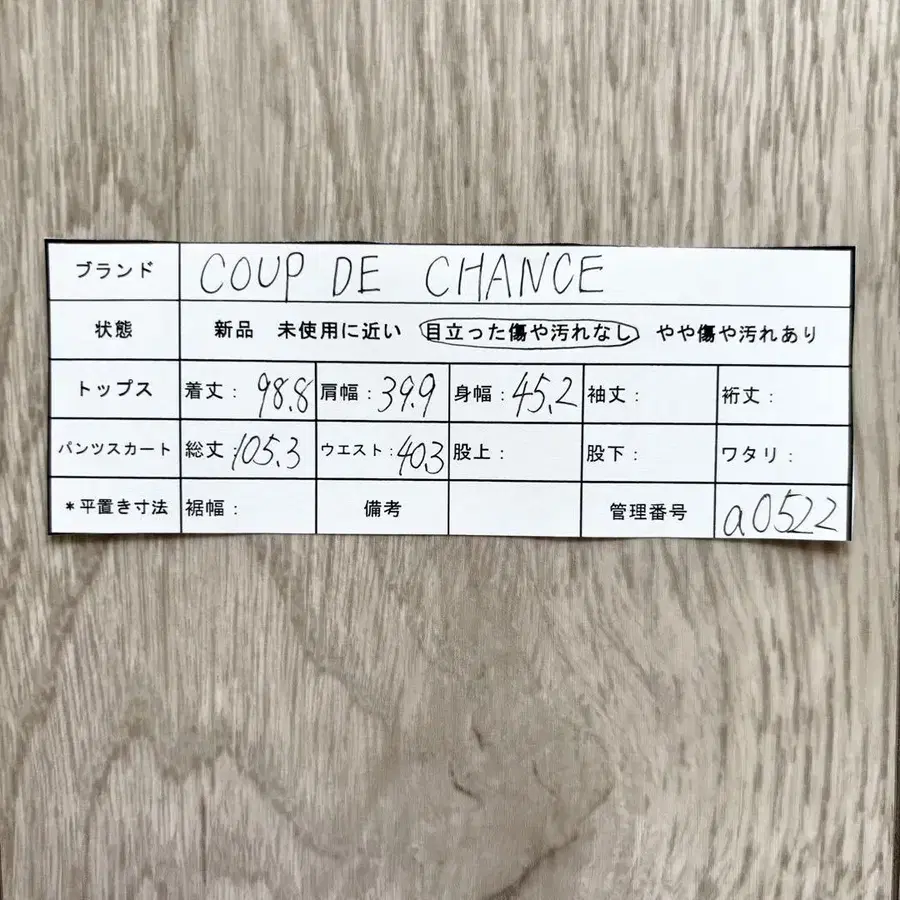 ブランド COUP DE CHANCE
状態 新品 未使用に近い 目立った傷や汚れなし やや傷や汚れあり
トップス 着丈: 98.8 肩幅: 39.9 身幅: 45.2 袖丈: 裄丈:
パンツスカート 総丈: 105.3 ウエスト: 40.3 股上: 股下: ワタリ:
*平置き寸法 裾幅: 備考 管理番号 a0522